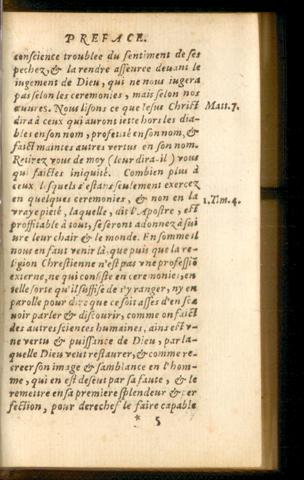 PREFACE.
conscience troublee du sentiment de ses
pechez, & la rendre asseuree deuant le
iugement de Dieu, qui ne nous iugera
pas selon les ceremonies, mais selon nos
œuures. Nous lisons ce que Iesus Christ Matt. 7.
dira à ceux qui auront iette hors les dia-
bles en son nom, profetisé en son nom, &
faict maintes autres vertus en son nom.
Retirez vous de moy (leur dira-il) vous
qui faictes iniquité. Combien plus à
ceux lesquels s'estans seulement exercez
en quelques ceremonies, & non en la 1. Tim. 4.
vraye pieté, laquelle, dit l'Apostre, est
proffitable à tout, se seront adonnez à sui
ure leur chair & le monde. En somme il
nous en faut venir là, que puis que la re-
ligion Chrestienne n'est pas vne professiō
externe, ne qui consiste en ceremonies, en
telle sorte qu'il suffise de s'y ranger, ny en
parolle pour dire que ce soit assés d'en sca
uoir parler & discourir, comme on faict
des autres sciences humaines, ains est v-
ne vertu & puissance de Dieu, par la-
quelle Dieu veut restaurer, & comme re-
creer son image & samblance en l'hom-
me, qui en est decheut par sa faute, & le
remettre en sa premiere splendeur & per
fection, pour derechef le faire capable
* 5